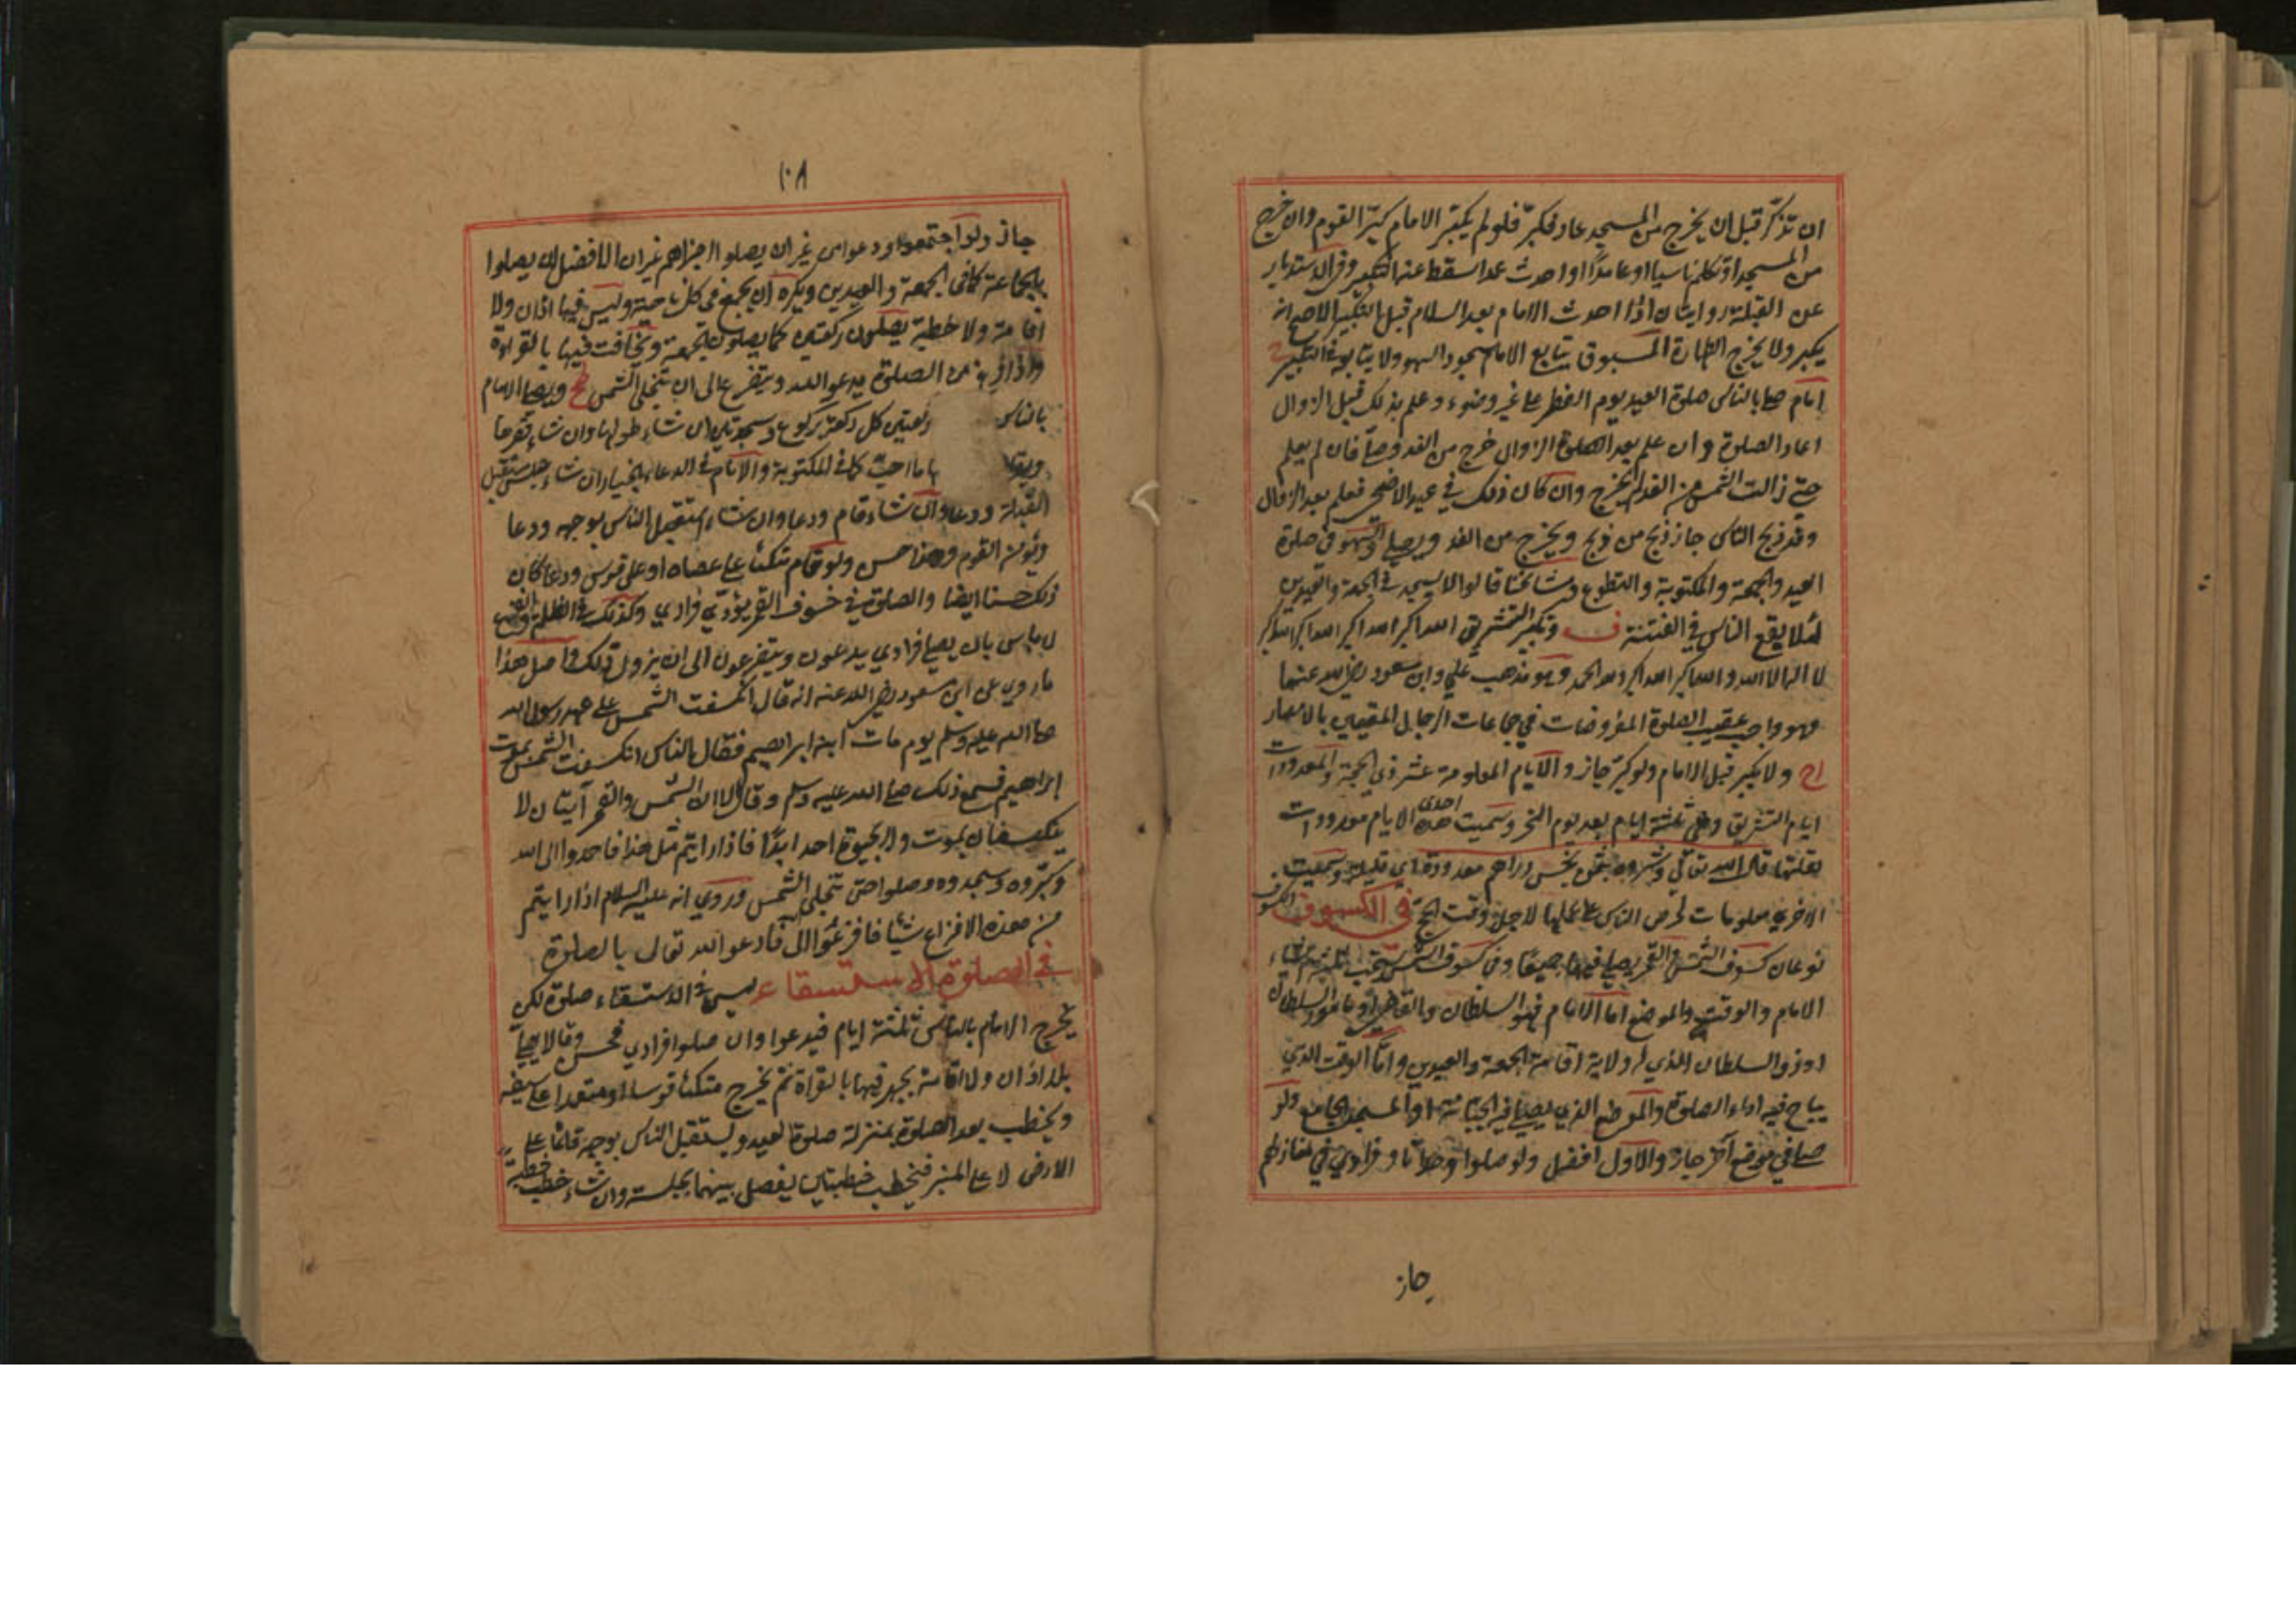 ان تذكر قبل ان يخرج من المسجد عاد فكبر فلو لم يكبر الامام كبر القوم وان خرج
من المسجد او تكلم ناسيا او عامدا او احدث عمدا سقط عنه التكبير وفي الاستدبار
عن القبلة روايتان اذا احدث الامام بعد السلام قبل التكبير الاصح انه
يكبر ولا يخرج الطهارة المسبوق يتابع الامام سجود السهو ولا يتابعه في التكبير
امام صلى بالناس صلوة العيد يوم الفطر على غير وضوء وعلم بذلك قبل الزوال
اعاد الصلوة وان علم بعد الزوال خرج من الغد وصلى فان لم يعلم
حتى زالت الشمس من الغد لم يخرج وان كان ذلك في عيد الاضحى فعلم بعد الزوال
وقد ذبح الناس جاز ذبح من ذبح ويخرج من الغد ويصلي والسهو في صلوة
العيد والجمعة والمكتوبة والتطوع ومشائخنا قالوا لا يسجد في الجمعة والعيدين
لئلا يقع الناس في الفتنة ف وتكبير التشريق الله اكبر الله اكبر الله اكبر الله اكبر
لا اله الا الله والله اكبر الله اكبر ولله الحمد وهو مذهب علي وابن مسعود رضي الله عنهما
وهو واجب عقيب الصلوة المفروضات في جماعات الرجال المقيمين بالامصار
اح ولا يكبر قبل الامام ولو كبر جاز والايام المعلومة عشر ذي الحجة والمعدودات
ايام التشريق وهي ثلثة ايام بعد يوم النحر وسميت احدى هذه الايام معدودات
لقلتها قال الله تعالى وشروه بثمن بخس دراهم معدودة اي قليلة وسميت
الاخرى معلومات لحرص الناس على علمها لاجل وقت الحج في الكسوف الكسوف
نوعان كسوف الشمس والقمر يصلي فيهما جميعا وفي كسوف الشمس يستحب ثلثة اشياء
الامام والوقت والموضع اما الامام فهو السلطان والقاضي او مامور السلطان
دون السلطان الذي له ولاية اقامة الجمعة والعيدين واما الوقت الذي
يباح فيه اداء الصلوة والموضع الذي يصلي فيه الجبانة او المسجد الجامع ولو
صلى في موضع آخر جاز والاول افضل ولو صلوا وحدانا وفرادي في منازلهم
جاز
١٠٨
جاز ولو اجتمعوا ودعوا من غير ان يصلوا اجزاهم غير ان الافضل ان يصلوا
بالجماعة كما في الجمعة والعيدين ويكره ان يجمع في كل ناحية وليس فيها اذان ولا
اقامة ولا خطبة يصلون ركعتين كما يصلون الجمعة ويخافت فيها بالقراءة
واذا فرغ من الصلوة يدعو الله ويتضرع الى ان تنجلي الشمس ويصلي الامام
بالناس ركعتين كل ركعة بركوع وسجدتين ان شاء طولها وان شاء قصرها
ويقرا ما احب كما في المكتوبة والامام في الدعاء بالخيار ان شاء جلس مستقبل
القبلة ودعا وان شاء قام ودعا وان شاء استقبل الناس بوجهه ودعا
ويؤمن القوم وهذا حسن ولو قام متكئا على عصاه او على قوس ودعا كان
ذلك حسنا ايضا والصلوة في خسوف القمر يؤدي فرادي وكذلك في الظلمة والفزع
لا باس بان يصلي فرادي يدعون ويتضرعون الى ان يزول ذلك واصل هذا
ما روي عن ابن مسعود رضي الله عنه انه قال انكسفت الشمس على عهد رسول الله
صلى الله عليه وسلم يوم مات ابنه ابراهيم فقال الناس انكسفت الشمس بموت
ابراهيم فسمع ذلك صلى الله عليه وسلم وقال الا ان الشمس والقمر آيتان لا
ينكسفان بموت ولا بحيوة احد ابدا فاذا رايتم مثل هذا فاحمدوا الى الله
وكبروه وسجدوه وصلوا حتى تنجلي الشمس وروي انه عليه السلام اذا رايتم
من هذه الافزاع شيئا فافزعوا الى فادعوا الله تعالى بالصلوة
في الصلوة الاستسقاء ليس في الاستسقاء صلوة لكن
يخرج الامام بالناس ثلثة ايام فيدعوا وان صلوا فرادي فحسن وقالا يصلي
بلا اذان ولا اقامة يجهر فيها بالقراة ثم يخرج متكئا قوسا او معتمدا على سيفه
ويخطب بعد الصلوة بمنزلة صلوة العيد ويستقبل الناس بوجهه قائما على
الارض لا على المنبر فيخطب خطبتين يفصل بينهما بجلسة وان شاء خطب خطبة